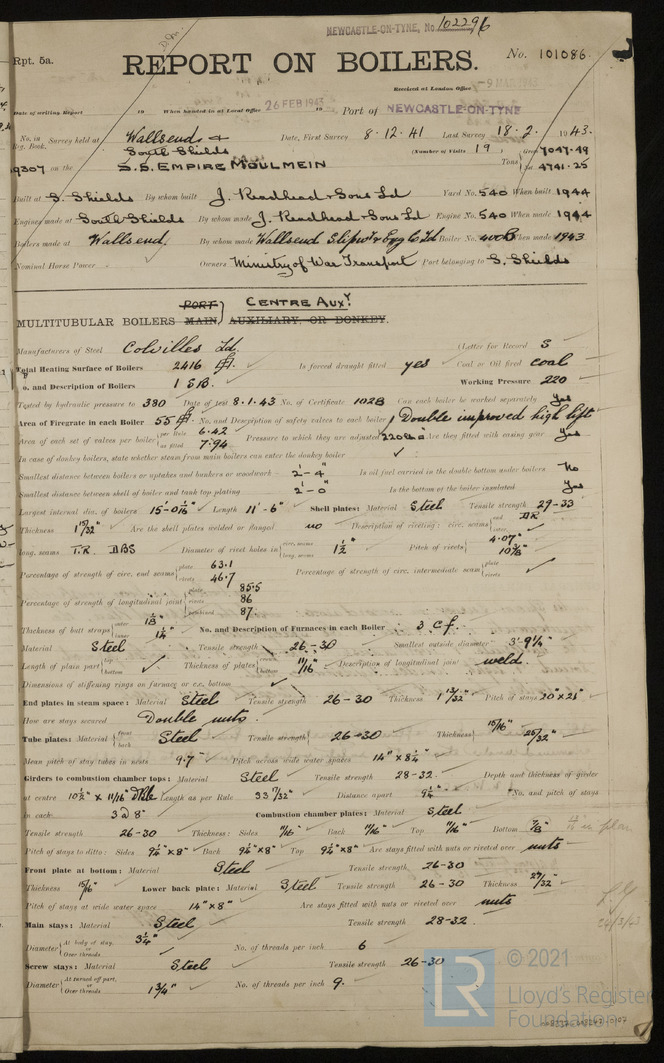 NEWCASTLE-ON-TYNE, No 102296
Rpt. 5a.
REPORT ON BOILERS.
No. 101086.
Received at London Office
9 MAR 1943
Date of writing Report 19 When handed in at Local Office 26 FEB 1943 19 Port of NEWCASTLE-ON-TYNE
No. in Reg. Book. Survey held at Wallsend & South Shields Date, First Survey 8.12.41 Last Survey 18.2. 1943.
(Number of Visits 19) Tons Gross 7047.49
9307 on the S.S. EMPIRE MOULMEIN Net 4741.25
Built at S. Shields By whom built J. Readhead & Sons Ld Yard No. 540 When built 1944
Engines made at South Shields By whom made J. Readhead & Sons Ld Engine No. 540 When made 1944
Boilers made at Wallsend By whom made Wallsend Slipway & Eng Co Ld Boiler No. When made 1943
Nominal Horse Power Owners Ministry of War Transport Port belonging to S. Shields
PORT) CENTRE AUXY.
MULTITUBULAR BOILERS MAIN, AUXILIARY, OR DONKEY.
Manufacturers of Steel Colvilles Ld. (Letter for Record S
Total Heating Surface of Boilers 2416 Is forced draught fitted yes Coal or Oil fired coal
No. and Description of Boilers 1 S.B. Working Pressure 220
Tested by hydraulic pressure to 380 Date of test 8.1.43 No. of Certificate 1028 Can each boiler be worked separately Yes
Area of Firegrate in each Boiler 55 No. and Description of safety valves to each boiler 1 Double improved high lift
Area of each set of valves per boiler per Rule 6.42 as fitted 7.94 Pressure to which they are adjusted 220 Are they fitted with easing gear Yes
In case of donkey boilers, state whether steam from main boilers can enter the donkey boiler ✓
Smallest distance between boilers or uptakes and bunkers or woodwork 2'-4" Is oil fuel carried in the double bottom under boilers No
Smallest distance between shell of boiler and tank top plating 2'-0" Is the bottom of the boiler insulated Yes
Largest internal dia. of boilers 15'-0⅛" Length 11'-6" Shell plates: Material Steel Tensile strength 29-33
Thickness 1 15/32" Are the shell plates welded or flanged no Description of riveting: circ. seams end DR inter. ✓
long. seams T.R. DBS Diameter of rivet holes in circ. seams long. seams 1½" Pitch of rivets 4.07" 10⅜"
Percentage of strength of circ. end seams plate 63.1 rivets 46.7 Percentage of strength of circ. intermediate seam plate rivets ✓
Percentage of strength of longitudinal joint plate 85.5 rivets 86 combined 87.
Thickness of butt straps outer 1⅛" inner 1¼" No. and Description of Furnaces in each Boiler 3 C.f.
Material Steel Tensile strength 26-30 Smallest outside diameter 3'-9¼"
Length of plain part top bottom ✓ Thickness of plates 11/16" Description of longitudinal joint weld.
Dimensions of stiffening rings on furnace or c.c. bottom ✓
End plates in steam space: Material Steel Tensile strength 26-30 Thickness 1 13/32" Pitch of stays 20" x 21"
How are stays secured Double nuts.
Tube plates: Material front back Steel Tensile strength 26-30 Thickness 15/16" 25/32"
Mean pitch of stay tubes in nests 9.7 Pitch across wide water spaces 14" x 8¼"
Girders to combustion chamber tops: Material Steel Tensile strength 28-32. Depth and thickness of girder
at centre 10½" x 11/16" dble Length as per Rule 33 7/32" Distance apart 9¼" No. and pitch of stays
in each 3 @ 8" Combustion chamber plates: Material Steel
Tensile strength 26-30 Thickness: Sides 11/16" Back 11/16" Top 11/16" Bottom 7/8"
Pitch of stays to ditto: Sides 9¼" x 8" Back 9¼" x 8" Top 9¼" x 8" Are stays fitted with nuts or riveted over nuts
Front plate at bottom: Material Steel Tensile strength 26-30
Thickness 15/16" Lower back plate: Material Steel Tensile strength 26-30 Thickness 29/32"
Pitch of stays at wide water space 14" x 8" Are stays fitted with nuts or riveted over nuts
Main stays: Material Steel Tensile strength 28-32.
Diameter At body of stay, or Over threads 3¼" No. of threads per inch 6
Screw stays: Material Steel Tensile strength 26-30
Diameter At turned off part, or Over threads 1¾" No. of threads per inch 9.
24/3/43
© 2021
LR
Lloyd's Register
Foundation